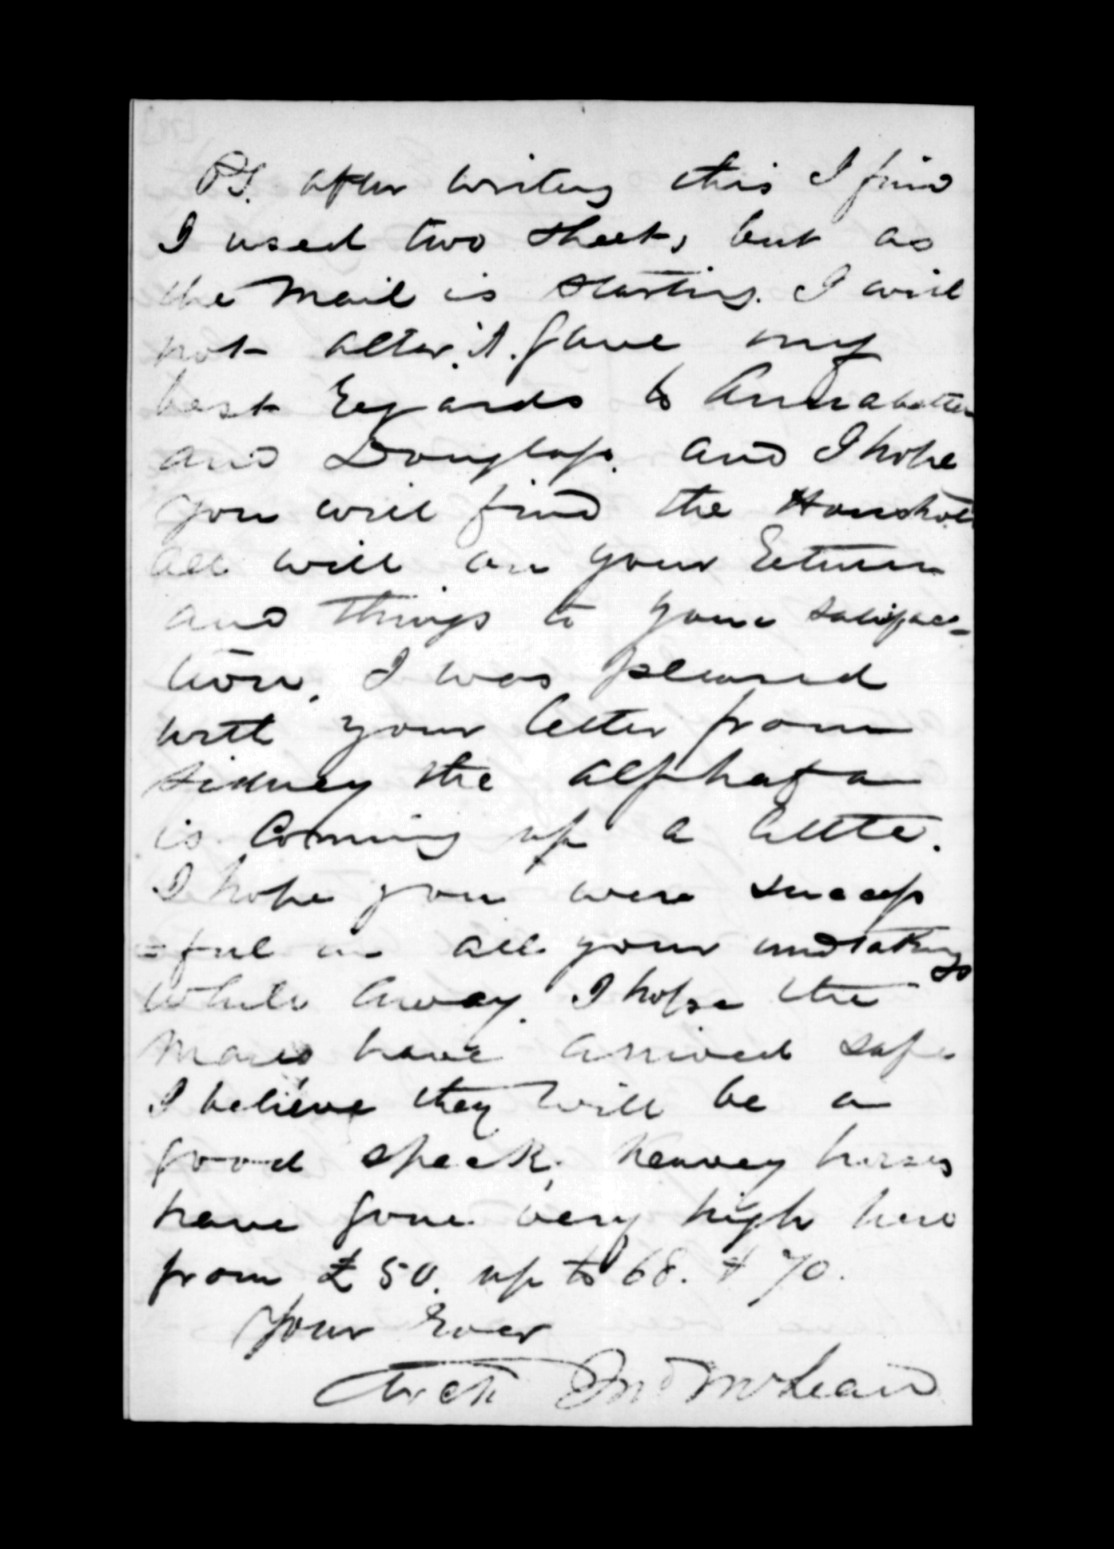 PS. after writing this I find
I used two sheets, but as
the Mail is starting. I will
not alter it. Gave my
best Regards to Annabella
and Douglass. and I hope
you will find the Houshold
all well on your Return
and things to your satisfac-
tion. I was pleased
with your letter from
Sidney the
is Coming up a little.
I hope you were success
=ful in all your undtakings
While Away. I hope the
Mares have arrived safe
I believe they will be a
good speck, heavey horses
have gone very high here
from £50. up to 68. & 70.
Your Ever
Arch Jno McLean